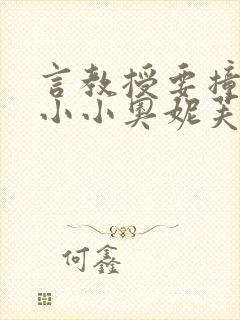 言教授要撞
小小奥妮芙
何鑫